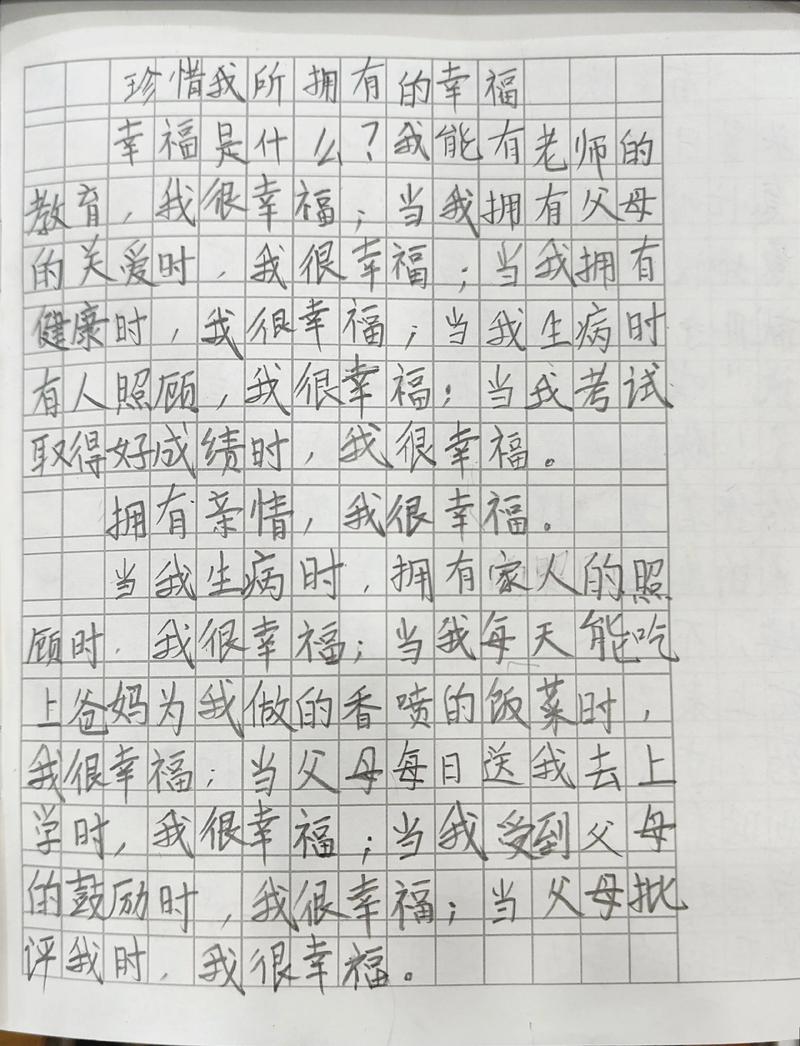 珍惜我所拥有的幸福
幸福是什么?我能有老师的
教育,我很幸福;当我拥有父母
的关爱时,我很幸福;当我拥有
健康时,我很幸福;当我生病时
有人照顾,我很幸福;当我考试
取得好成绩时,我很幸福。
拥有亲情,我很幸福。
当我生病时,拥有家人的照
顾时,我很幸福;当我每天能吃
上爸妈为我做的香喷的饭菜时,
我很幸福;当父母每日送我去上
学时,我很幸福;当我受到父母
的鼓励时,我很幸福;当父母批
评我时,我很幸福。